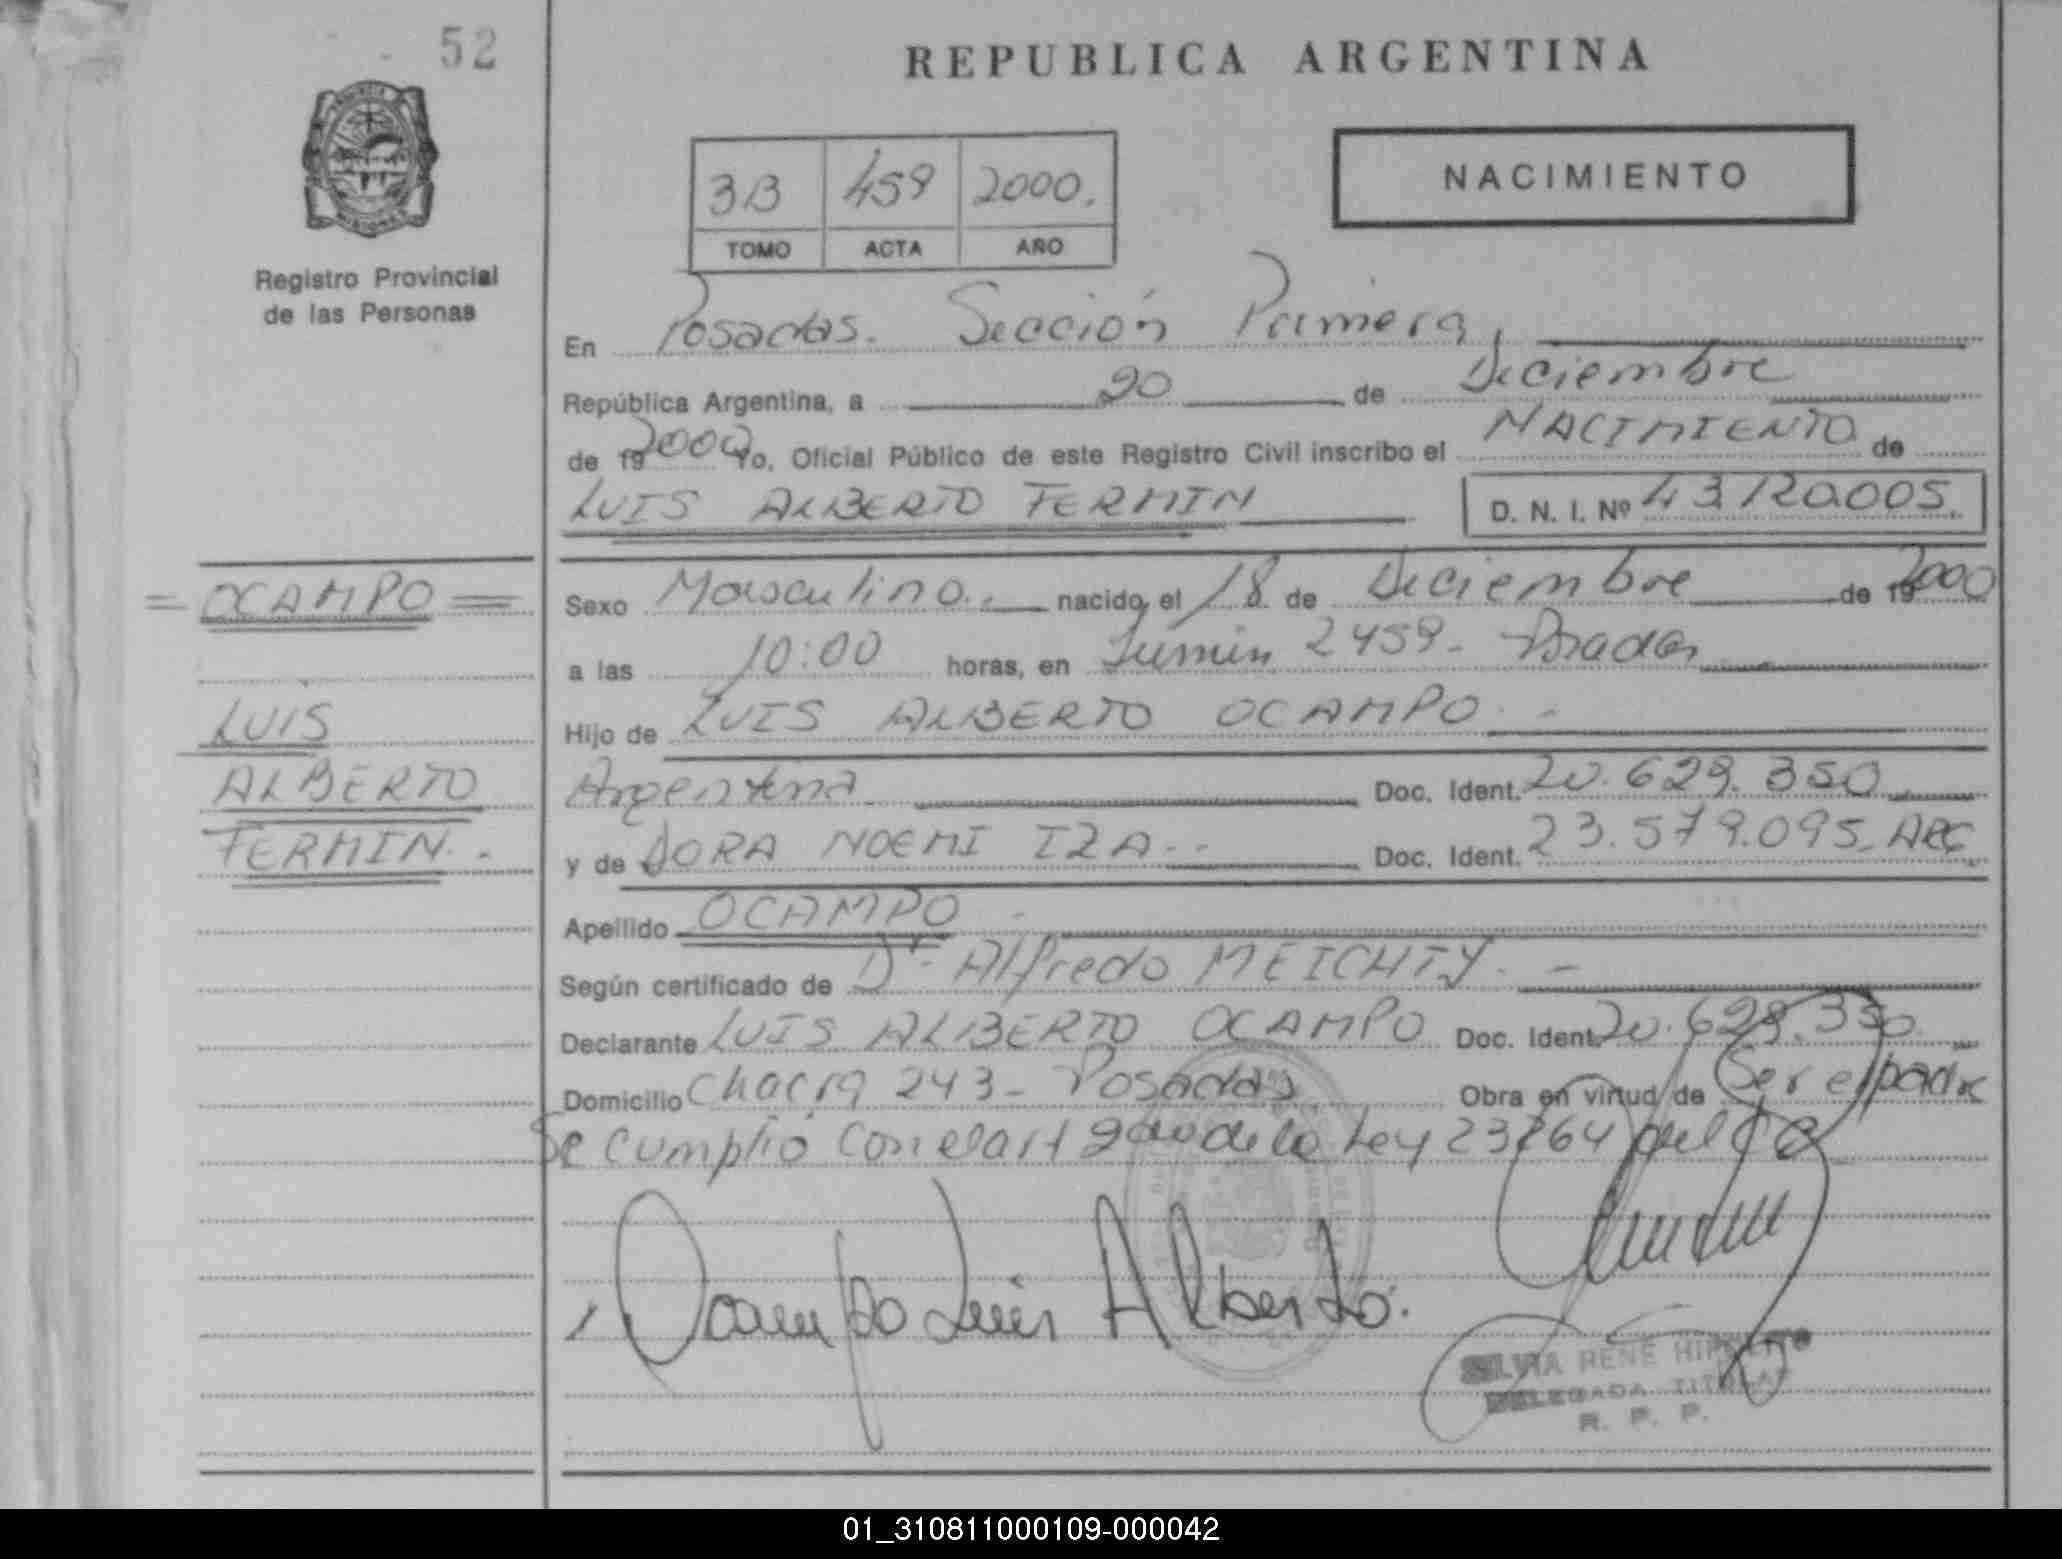 52
REPUBLICA ARGENTINA
3B 459 2000.
TOMO ACTA AÑO
NACIMIENTO
Registro Provincial
de las Personas
En Posadas. Sección Primera,
República Argentina, a 20 de Diciembre
de 19 2000 Yo, Oficial Público de este Registro Civil inscribo el NACIMIENTO de
LUIS ALBERTO FERMIN D. N. I. Nº 43.120.005.
= OCAMPO =
LUIS
ALBERTO
FERMIN. -
Sexo Masculino., nacido el 18 de Diciembre de 19 2000
a las 10:00 horas, en 2459 - Posadas
Hijo de LUIS ALBERTO OCAMPO. -
Argentina Doc. Ident. 20.629.350
y de DORA NOEMI IZA. - Doc. Ident. 23.579.095. ARG.
Apellido OCAMPO -
Según certificado de Dr. Alfredo MEICHTY. -
Declarante LUIS ALBERTO OCAMPO Doc. Ident. 20.629.350
Domicilio Chacra 243 - Posadas Obra en virtud de Ser el padre
Se cumplió con el art de la Ley 23264 del
Ocampo Luis Alberto.
SILVIA RENE HIPOLITO
DELEGADA TITULAR
R. P. P.
01_310811000109-000042